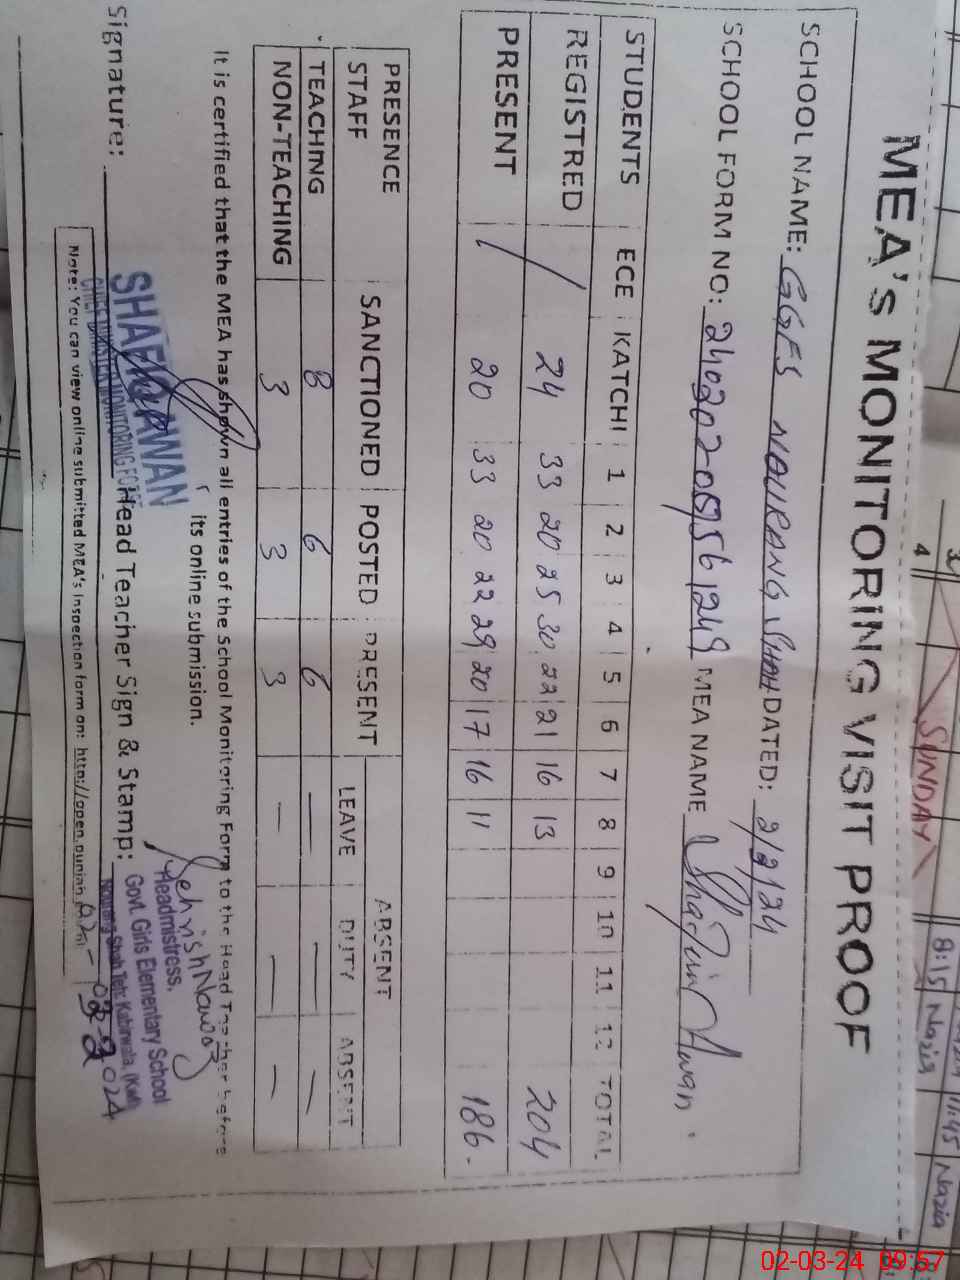 MEA's MONITORING VISIT PROOF
SCHOOL NAME: GGES NOURANG SHAH DATED: 2/2/24
SCHOOL FORM NO: MEA NAME Awan
STUDENTS ECE KATCHI 1 2 3 4 5 6 7 8 9 10 11 12 TOTAL
REGISTRED / 24 33 20 25 30 22 21 16 13 204
PRESENT 20 33 20 22 29 20 17 16 11 186
PRESENCE ABSENT
STAFF SANCTIONED POSTED PRESENT LEAVE DUTY ABSENT
TEACHING 8 6 6 — — —
NON-TEACHING 3 3 3 — — —
It is certified that the MEA has shown all entries of the School Monitoring Form to the Head Teacher before
its online submission.
Signature: Head Teacher Sign & Stamp:
AWAN
CHIEF MINISTER MONITORING FORCE
Sehrish Nawaz
Headmistress.
Govt. Girls Elementary School
Nourang Shah Teh: Kabirwala, (Kwl)
Note: You can view online submitted MEA's Inspection form on: http://open.punjab
02-02-2024
SUNDAY
4
8:15 Nazia 11:45 Nazia
02-03-24 09:57